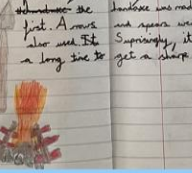 the
first. Arrows
also used. It
a long time to
was mad
and spears wer
Suprisingly, it
get a sharp